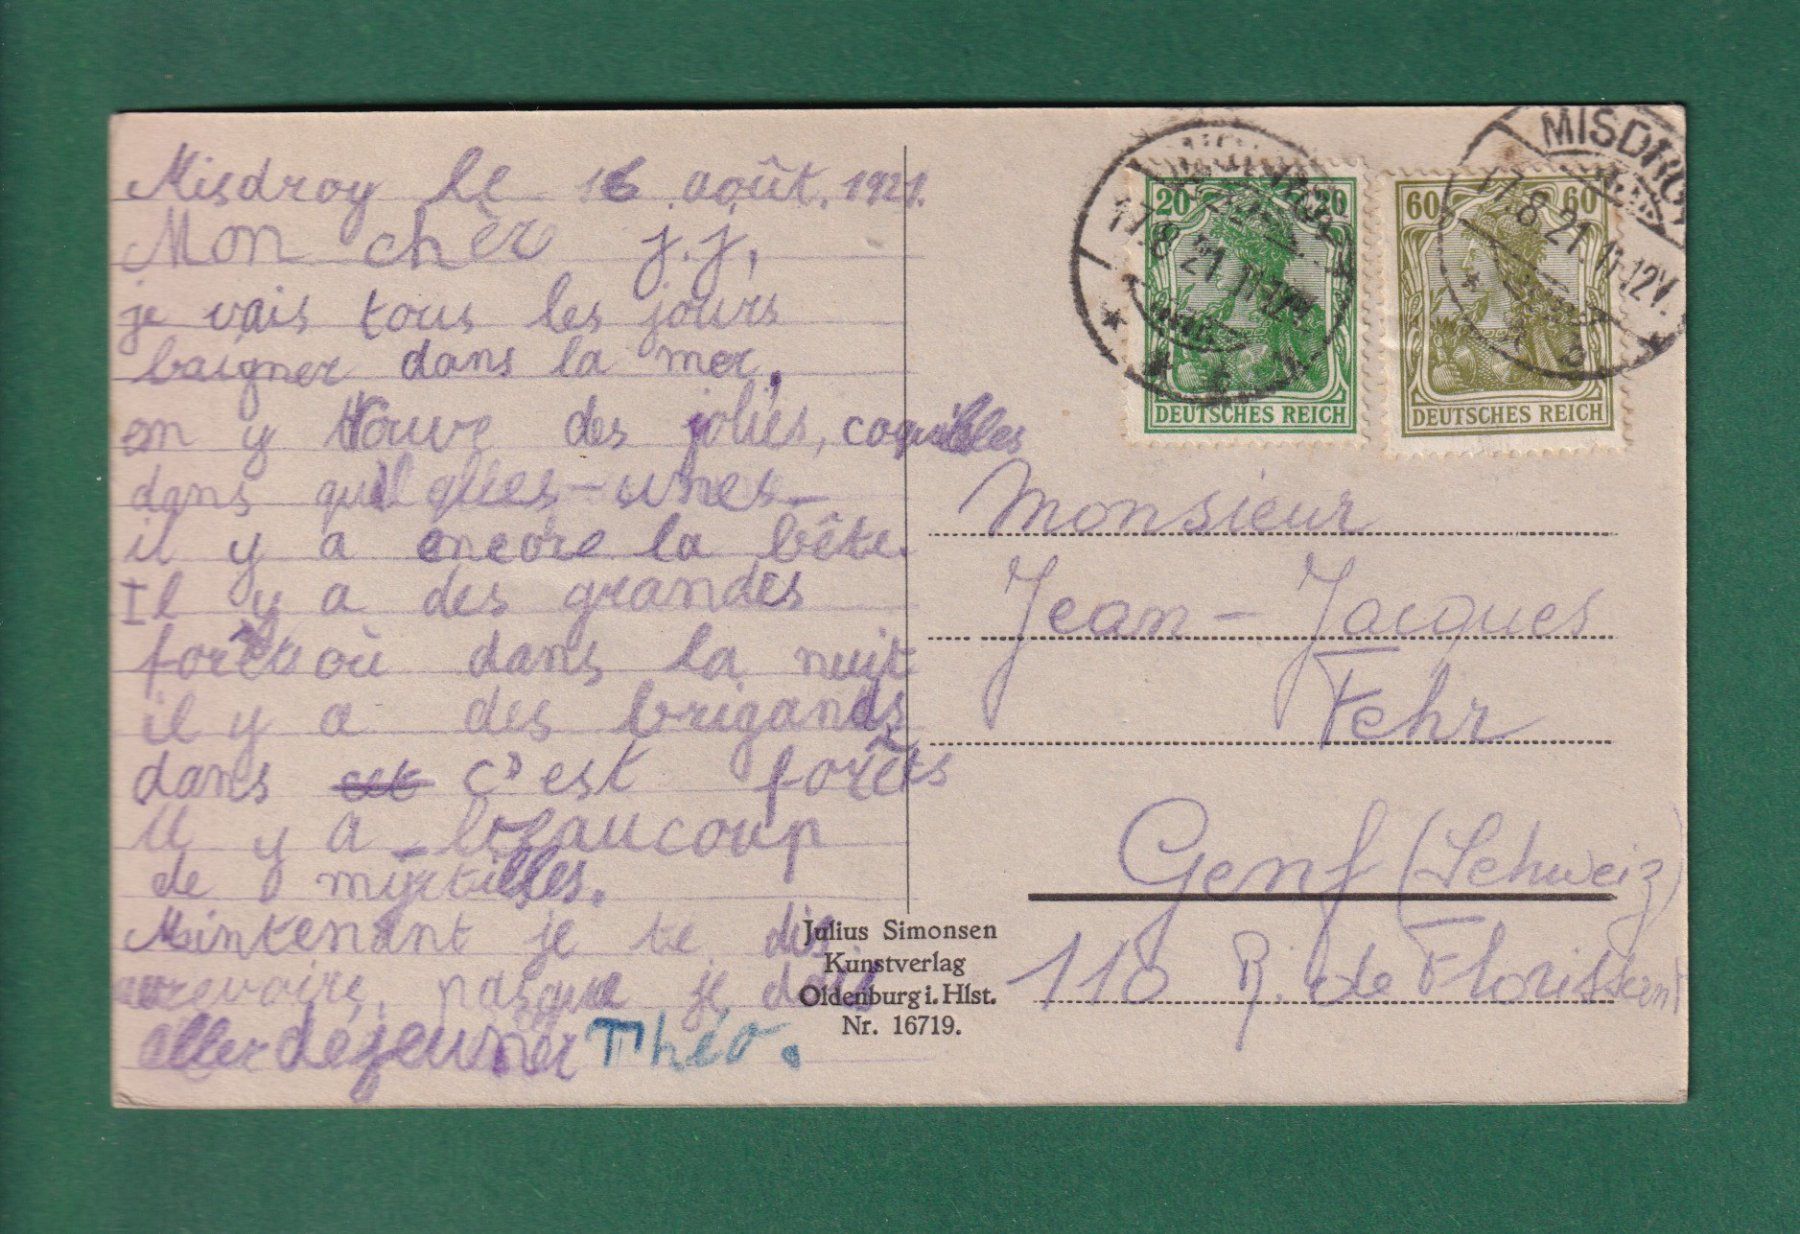 Misdroy le 16 août. 1921.
Mon chèr J.J,
je vais tous les jours
baigner dans la mer,
on y trouve des jolies, coquilles
dans quelques-unes-
il y a encore la bête.
Il y a des grandes
forêts où dans la nuit
il y a des brigands
dans cet c'est forêts
Il y a beaucoup
de myrtilles.
Maintenant je te dis
aurevoire, pasque je dois
aller déjeuner Théo.
MISDROY
17.8.21.11-12V.
20 20
DEUTSCHES REICH
MISDROY
17.8.21.11-12V.
60 60
DEUTSCHES REICH
Monsieur
Jean-Jacques
Fehr
Genf (Schweiz)
110 R. de Florissant
Julius Simonsen
Kunstverlag
Oldenburg i. Hlst.
Nr. 16719.